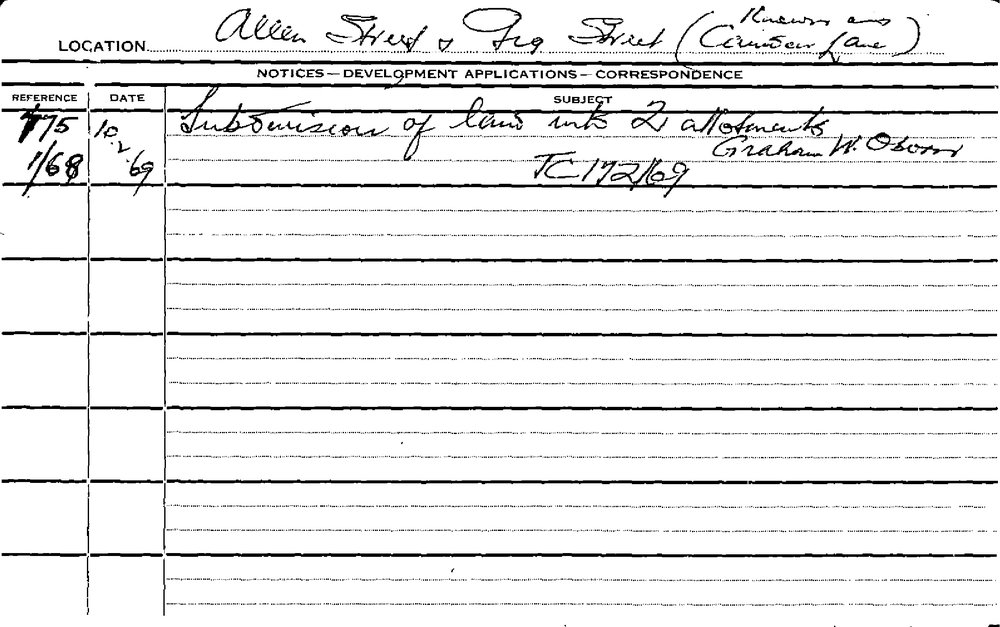 LOCATION Allen Street & Fig Street (Known as
Lane)
NOTICES—DEVELOPMENT APPLICATIONS—CORRESPONDENCE
REFERENCE DATE SUBJECT
775 10 Subdivision of land into 2 allotments
.2 Graham W. Osborn
1/68 '69 TC 172/69